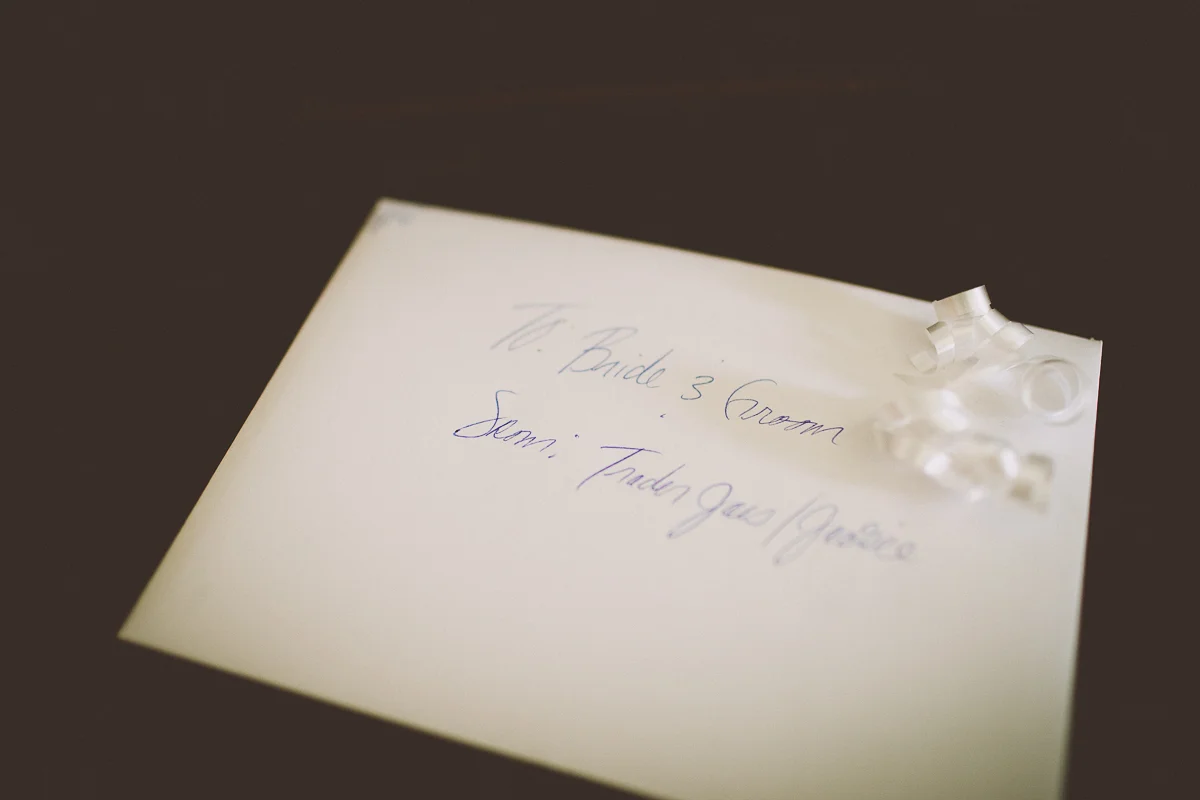 To: Bride & Groom
From: Trader Joes/Jessica